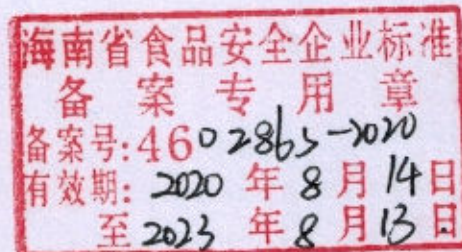 海南省食品安全企业标准
备案专用章
备案号:4602865-2020
有效期: 2020 年 8 月 14 日
至 2023 年 8 月 13 日